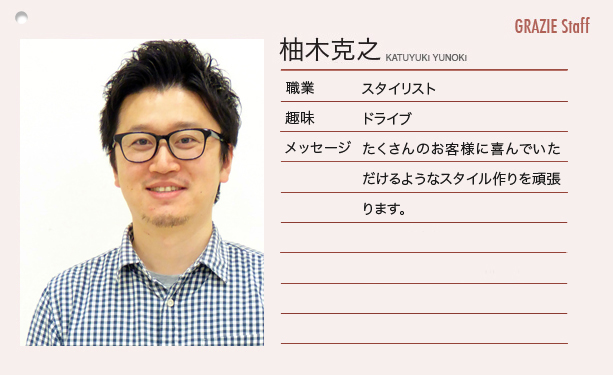 GRAZIE Staff
柚木克之 KATUYUKI YUNOKI
職業 スタイリスト
趣味 ドライブ
メッセージ たくさんのお客様に喜んでいた
だけるようなスタイル作りを頑張
ります。